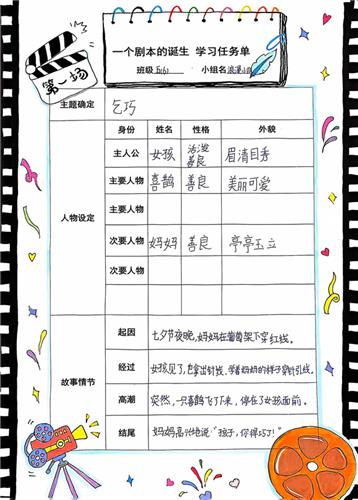 第一场
一个剧本的诞生 学习任务单
班级 五(6) 小组名 浪漫
主题确定 乞巧
人物设定
身份 姓名 性格 外貌
主人公 女孩 活泼善良 眉清目秀
主要人物 喜鹊 善良 美丽可爱
主要人物
次要人物 妈妈 善良 亭亭玉立
次要人物
故事情节
起因 七夕节夜晚,妈妈在葡萄架下穿红线。
经过 女孩见了,也拿出针线,学着妈妈的样子穿针引线。
高潮 突然,一只喜鹊飞了下来,停在了女孩面前。
结尾 妈妈高兴地说:“孩子,你得巧了!”